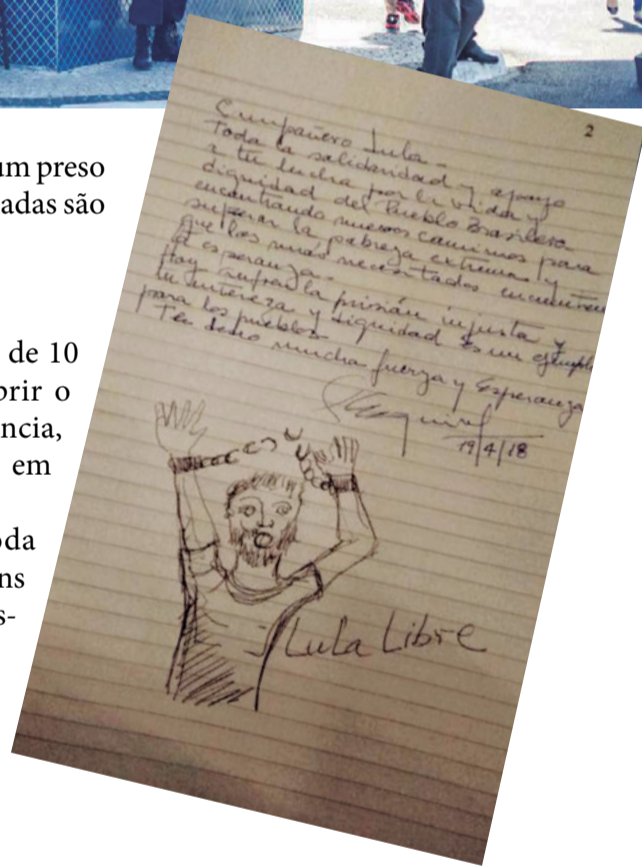 um preso
adas são
de 10
brir o
ncia,
em
oda
ns
s-
2
Compañero Lula -
Toda la solidaridad y apoyo
a tu lucha por la vida y
dignidad del Pueblo Brasilero
encontrando nuevos caminos para
superar la pobreza extrema y
que los mas necesitados encuentren
la esperanza.
Hoy sufres la prisión injusta y
tu entereza y dignidad es un ejemplo
para los pueblos
Te deseo mucha fuerza y Esperanza
19/4/18
Lula Libre